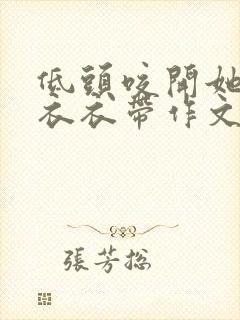 低頭咬開她
衣衣帶作文
張芳總